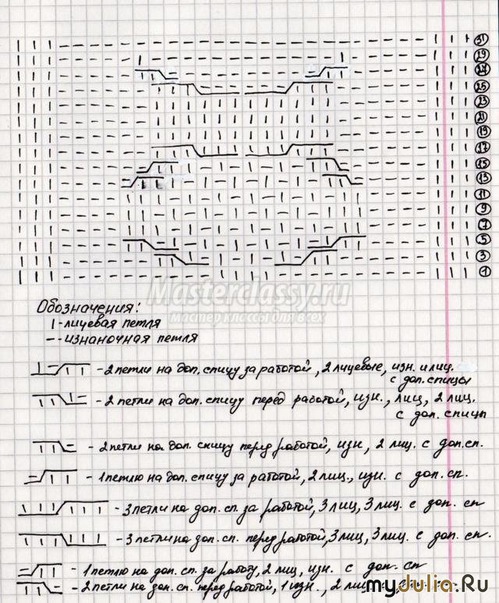 31
29
27
25
23
21
19
17
15
13
11
9
7
5
3
1
Masterclassy.ru
мастер-классы для всех
Обозначения:
| - лицевая петля
— - изнаночная петля
- 2 петли на доп. спицу за работой, 2 лицевые, изн. и лиц.
с доп. спицы
- 2 петли на доп. спицу перед работой, изн., лиц, 2 лиц.
с доп. спицы
- 2 петли на доп. спицу перед работой, изн, 2 лиц. с доп. сп.
- 1 петлю на доп. спицу за работой, 2 лиц., изн. с доп. сп.
- 3 петли на доп. сп. за работой, 3 лиц, 3 лиц. с доп. сп
- 3 петли на доп. сп. перед работой, 3 лиц, 3 лиц. с доп. сп.
- 1 петлю на доп. сп. за работу, 2 лиц, изн. с доп. сп
- 2 петли на доп. сп. перед работой, 1 изн., 2 лиц
myJulia.Ru